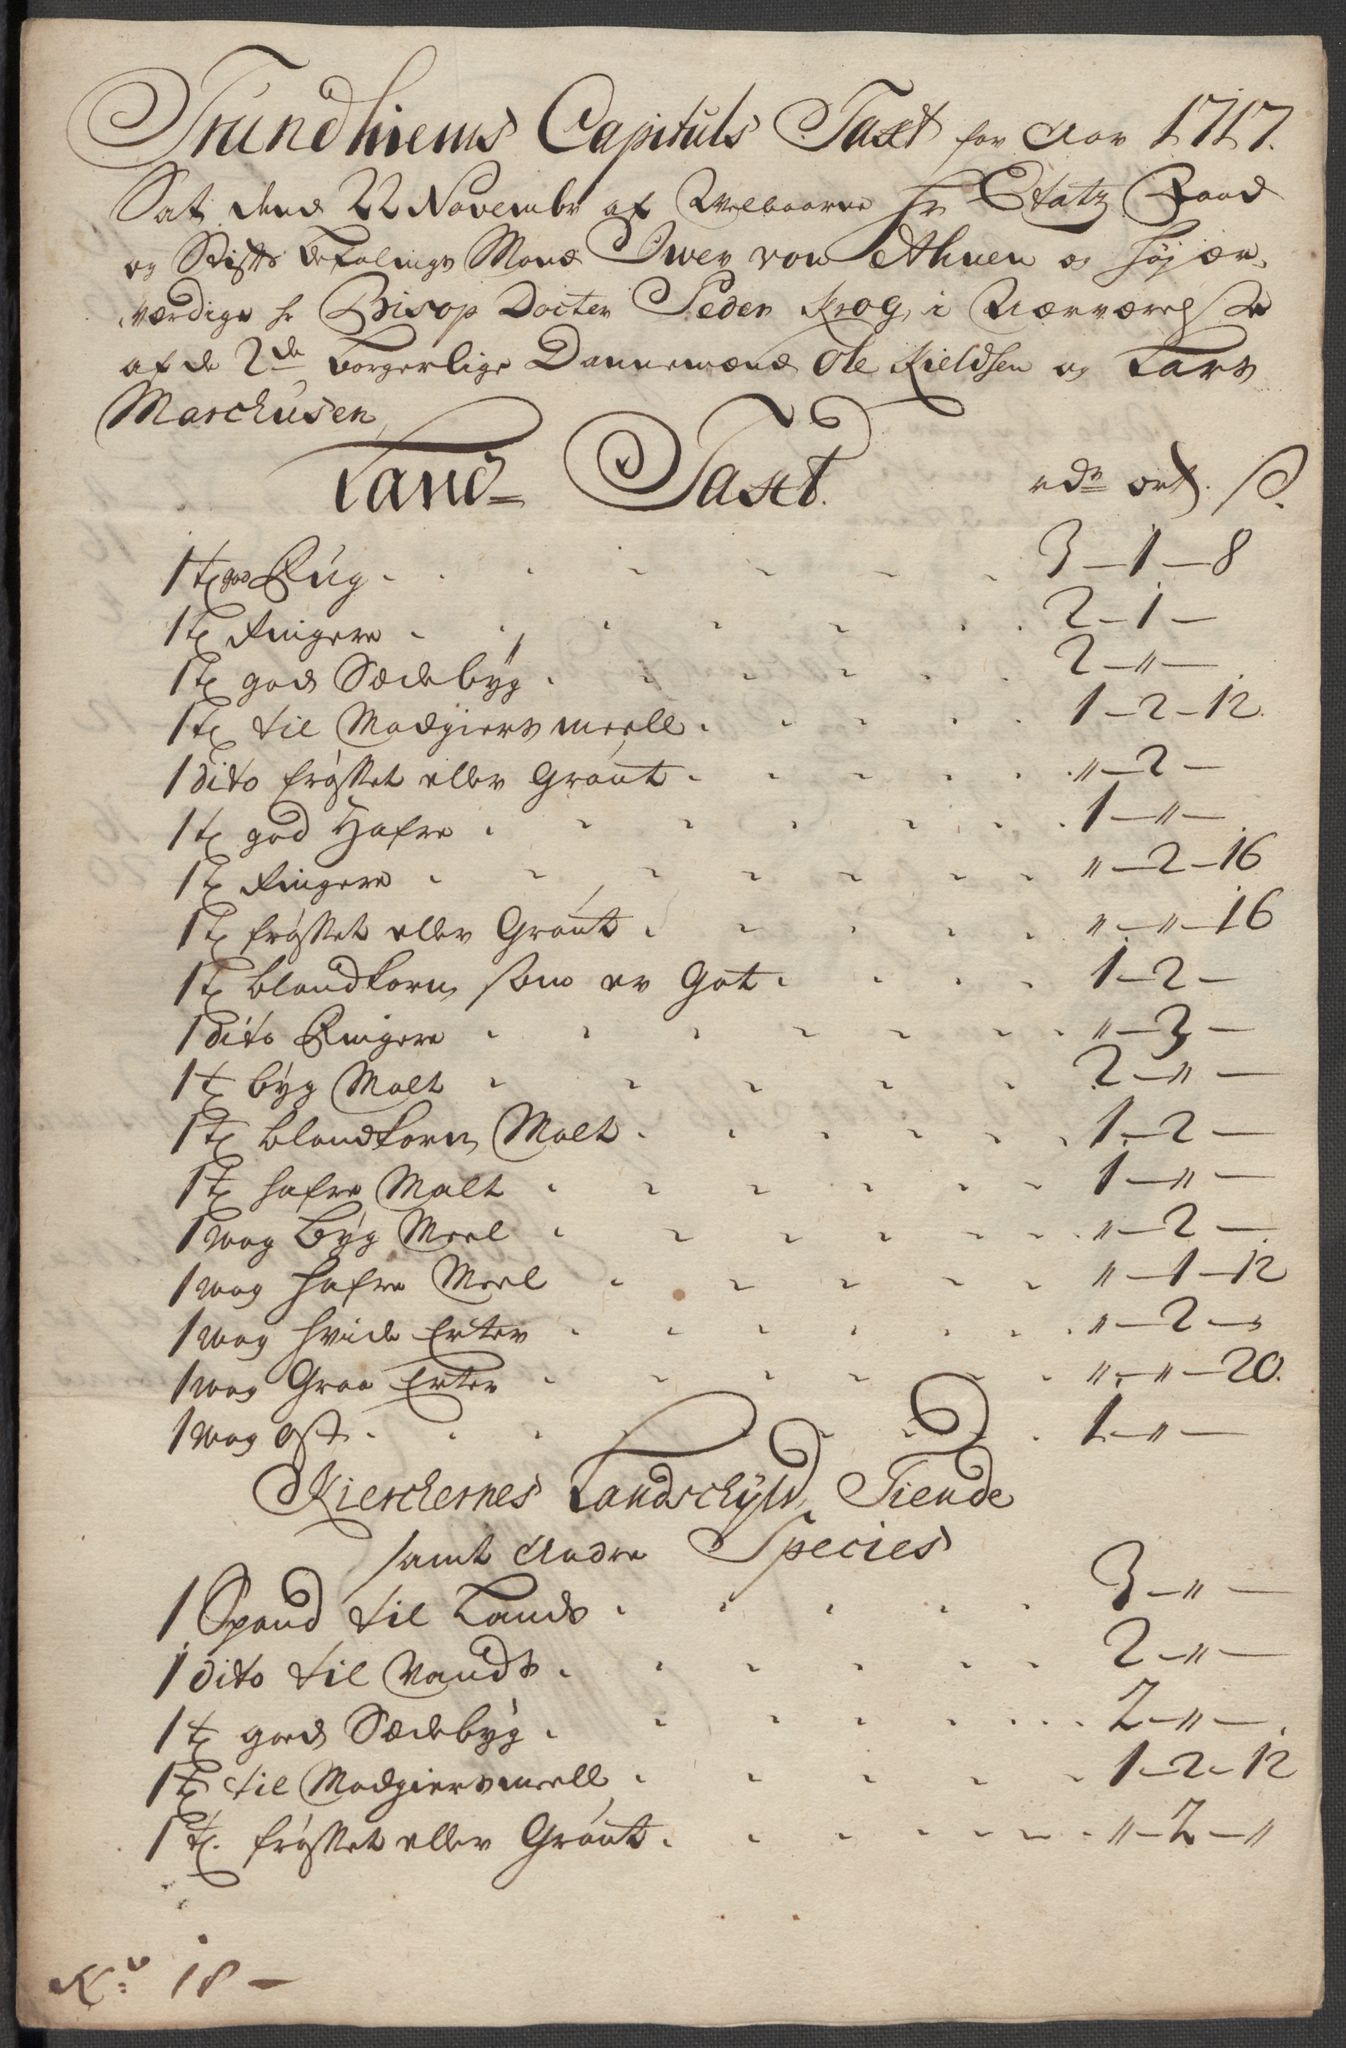 Trundhiems Capituls Taxt for Aar 1717.
Sat dend 22 Novembr af Welbaarne Hr Etatz Raad
og Stifts Befalings Mand Iwer von Ahnen og Høj ær-
værdige Hr Bisop Docter Peder Krog, i Nærværelse
af de 2de Borgerlige Dannemænd Ole Kieldsen og Lars
Marchusen
Land- Taxt. rdr ort. ß.
1 tø god Rug 3 - 1 - 8
1 tø Ringere 2 - 1 -
1 tø god Sædebÿg 2 - " -
1 tø til Madgiers meell 1 - 2 - 12.
1 dito frøsset eller Grønt " - 2 -
1 tø god Hafre 1 - " -
1 tø Ringere " - 2 - 16
1 tø frøsset eller Grønt " - " - 16
1 tø blandkorn som er Got 1 - 2 -
1 dito Ringere " - 3 -
1 tø bÿg Malt 2 - " -
1 tø blandkorn Malt 1 - 2 -
1 tø hafre Malt 1 - " -
1 wog Bÿg Meel " - 2 -
1 wog hafre Meel " - 1 - 12
1 wog hvide Erter " - 2 -
1 wog Graa Erter " - " - 20.
1 wog ost 1 - " -
Kierckernes Landschÿld, Tiende
samt Andre Species
1 Spand til Lands 3 - " -
1 dito til Vands 2 - " -
1 tø goed Sædebÿg 2 - " -
1 tø til Madgiersmeell 1 - 2 - 12
1 tø. frøsset eller Grønt " - 2 - "
No 18 -